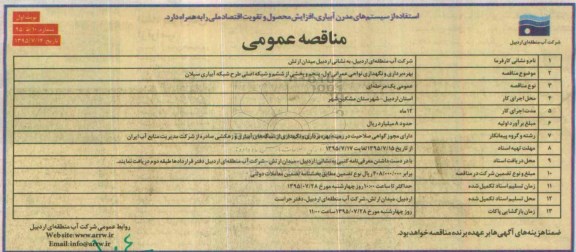 استفاده از سیستم‌های مدرن آبیاری، افزایش محصول و تقویت اقتصاد ملی را به همراه دارد.
نوبت اول
تاریخ ۱۳۹۵/۷/۱۴
شرکت آب منطقه‌ای اردبیل
مناقصه عمومی
۱ نام و نشانی کارفرما شرکت آب منطقه‌ای اردبیل، به نشانی اردبیل میدان ارتش
۲ موضوع مناقصه بهره‌برداری و نگهداری نواحی عمرانی اول، پنجم و بخشی از ششم و شبکه اصلی طرح شبکه آبیاری سبلان
۳ نوع مناقصه عمومی یک مرحله‌ای
۴ محل اجرای کار استان اردبیل - شهرستان مشکین شهر
۵ مدت اجرای کار ۱۲ ماه
۶ مبلغ برآورد اولیه حدود ۸ میلیارد ریال
۷ رشته و گروه پیمانکار دارای مجوز گواهی صلاحیت در زمینه بهره‌برداری و نگهداری از شبکه‌های آبیاری و زهکشی صادره از شرکت مدیریت منابع آب ایران
۸ مهلت تهیه اسناد از تاریخ ۱۳۹۵/۷/۱۵ لغایت ۱۳۹۵/۷/۱۷
۹ محل دریافت اسناد با در دست داشتن معرفی‌نامه کتبی به نشانی اردبیل - میدان ارتش - شرکت آب منطقه‌ای اردبیل دفتر قراردادها طبقه دوم دریافت نمایند.
۱۰ مبلغ و نوع تضمین شرکت در مناقصه برابر ۴۰۸/۰۰۰/۰۰۰ ریال نوع تضمین مطابق بخشنامه تضمین معاملات دولتی
۱۱ زمان تسلیم اسناد تکمیل شده حداکثر تا ساعت ۱۰:۰۰ روز چهارشنبه مورخ ۱۳۹۵/۰۷/۲۸
۱۲ محل تسلیم اسناد تکمیل شده اردبیل، میدان ارتش، شرکت آب منطقه‌ای اردبیل، دفتر حراست
۱۳ زمان بازگشایی پاکات روز چهارشنبه مورخ ۱۳۹۵/۰۷/۲۸ ساعت ۱۱:۰۰
ضمنا هزینه های آگهی ها بر عهده برنده مناقصه خواهد بود.
روابط عمومی شرکت آب منطقه‌ای اردبیل
Website:www.arrw.ir
Email:info@arrw.ir